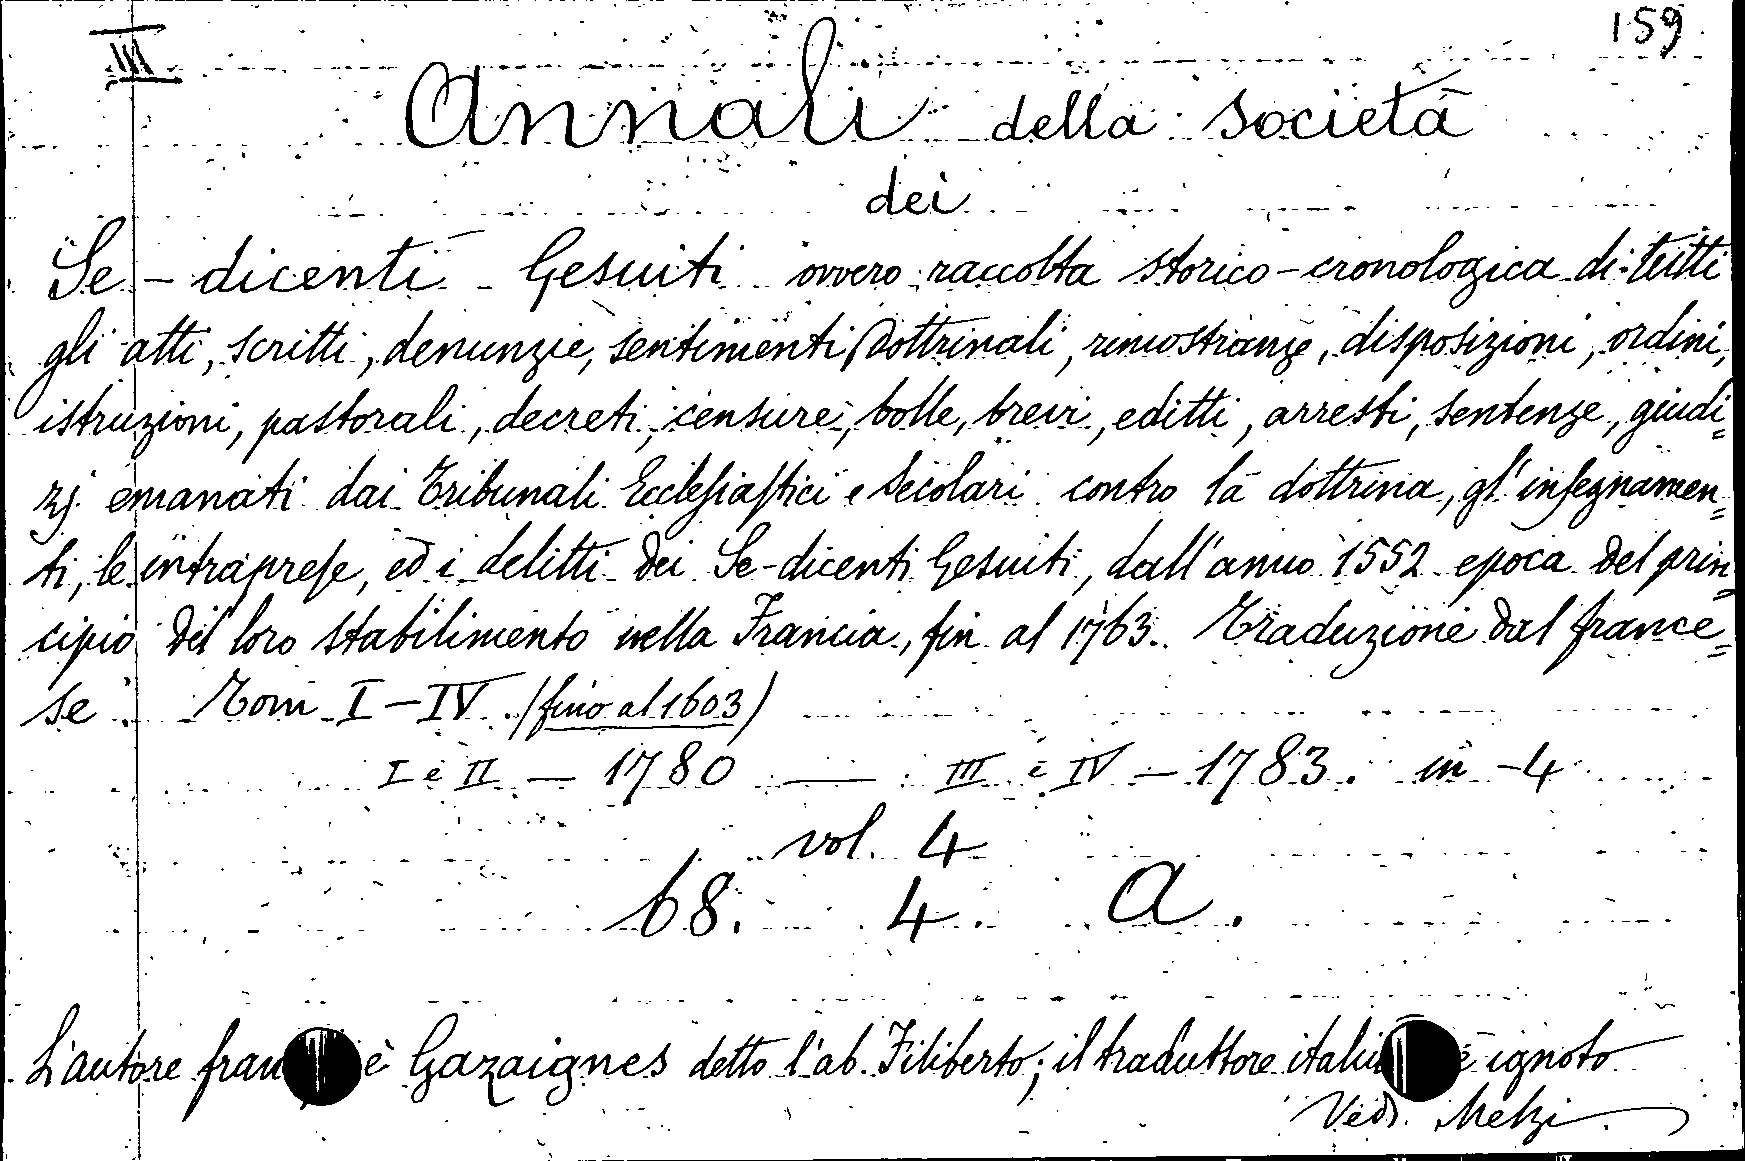 III
159
Annali della società
dei
Se-dicenti Gesuiti ovvero raccolta storico-cronologica di tutti
gli atti, scritti, denunzie, sentimenti Dottrinali, rimostranze, disposizioni, ordini,
istruzioni, pastorali, decreti, censure, bolle, brevi, editti, arresti, sentenze, giudi=
zj emanati dai Tribunali Ecclesiastici e Secolari contro la dottrina, gl'insegnamen=
ti, le intraprese, ed i delitti dei Se-dicenti Gesuiti, dall'anno 1552 epoca del prin=
cipio del loro stabilimento nella Francia, fin al 1763. Traduzione dal france=
se. Tomi I-IV. (fino al 1603)
I e II — 1780 — III e IV — 1783. in-4
vol. 4
68. 4. A.
L'autore fran è Gazaignes detto l'ab. Filiberto; il traduttore italia è ignoto
Vedi Melzi.